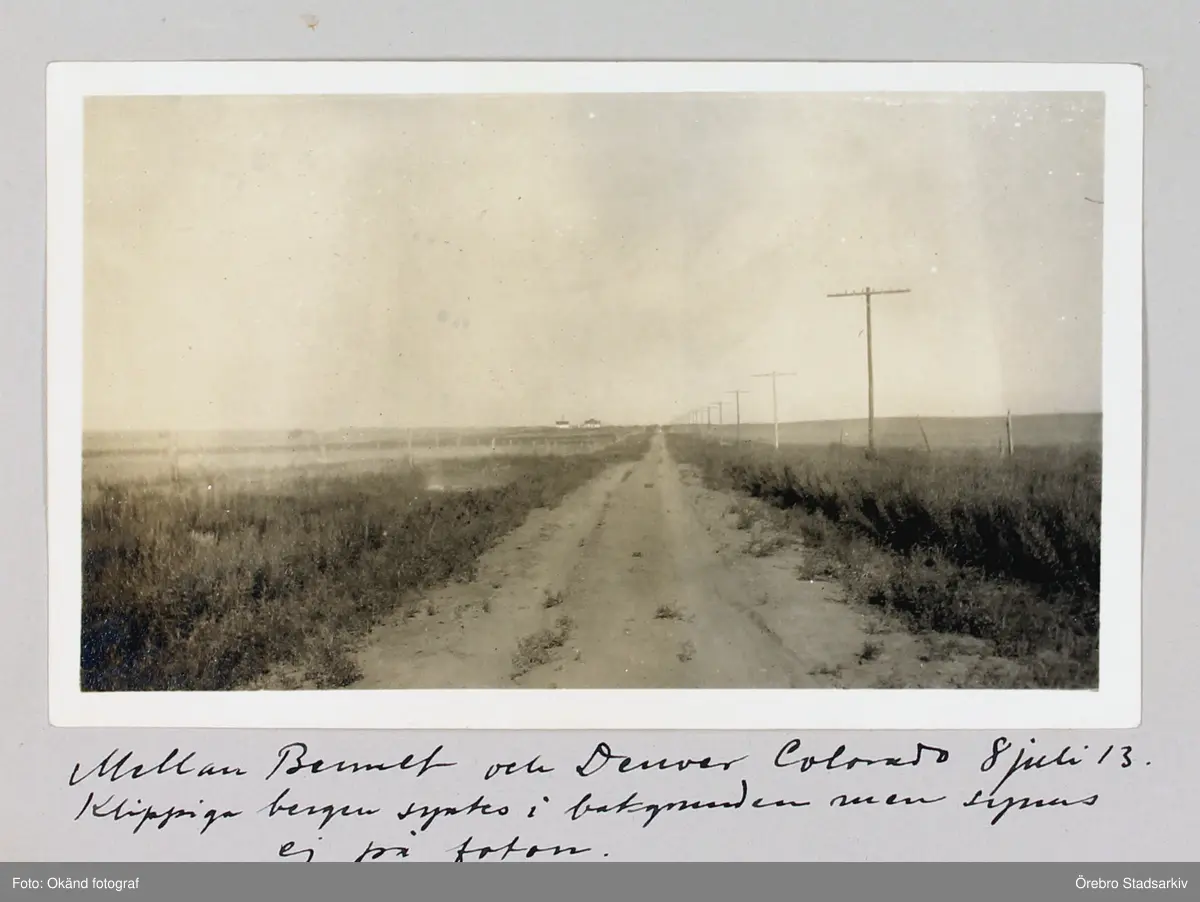 Mellan Bennet och Denver Colorado 8 juli 13.
Klippiga bergen syntes i bakgrunden men synas
ej på foton.
Foto: Okänd fotograf
Örebro Stadsarkiv